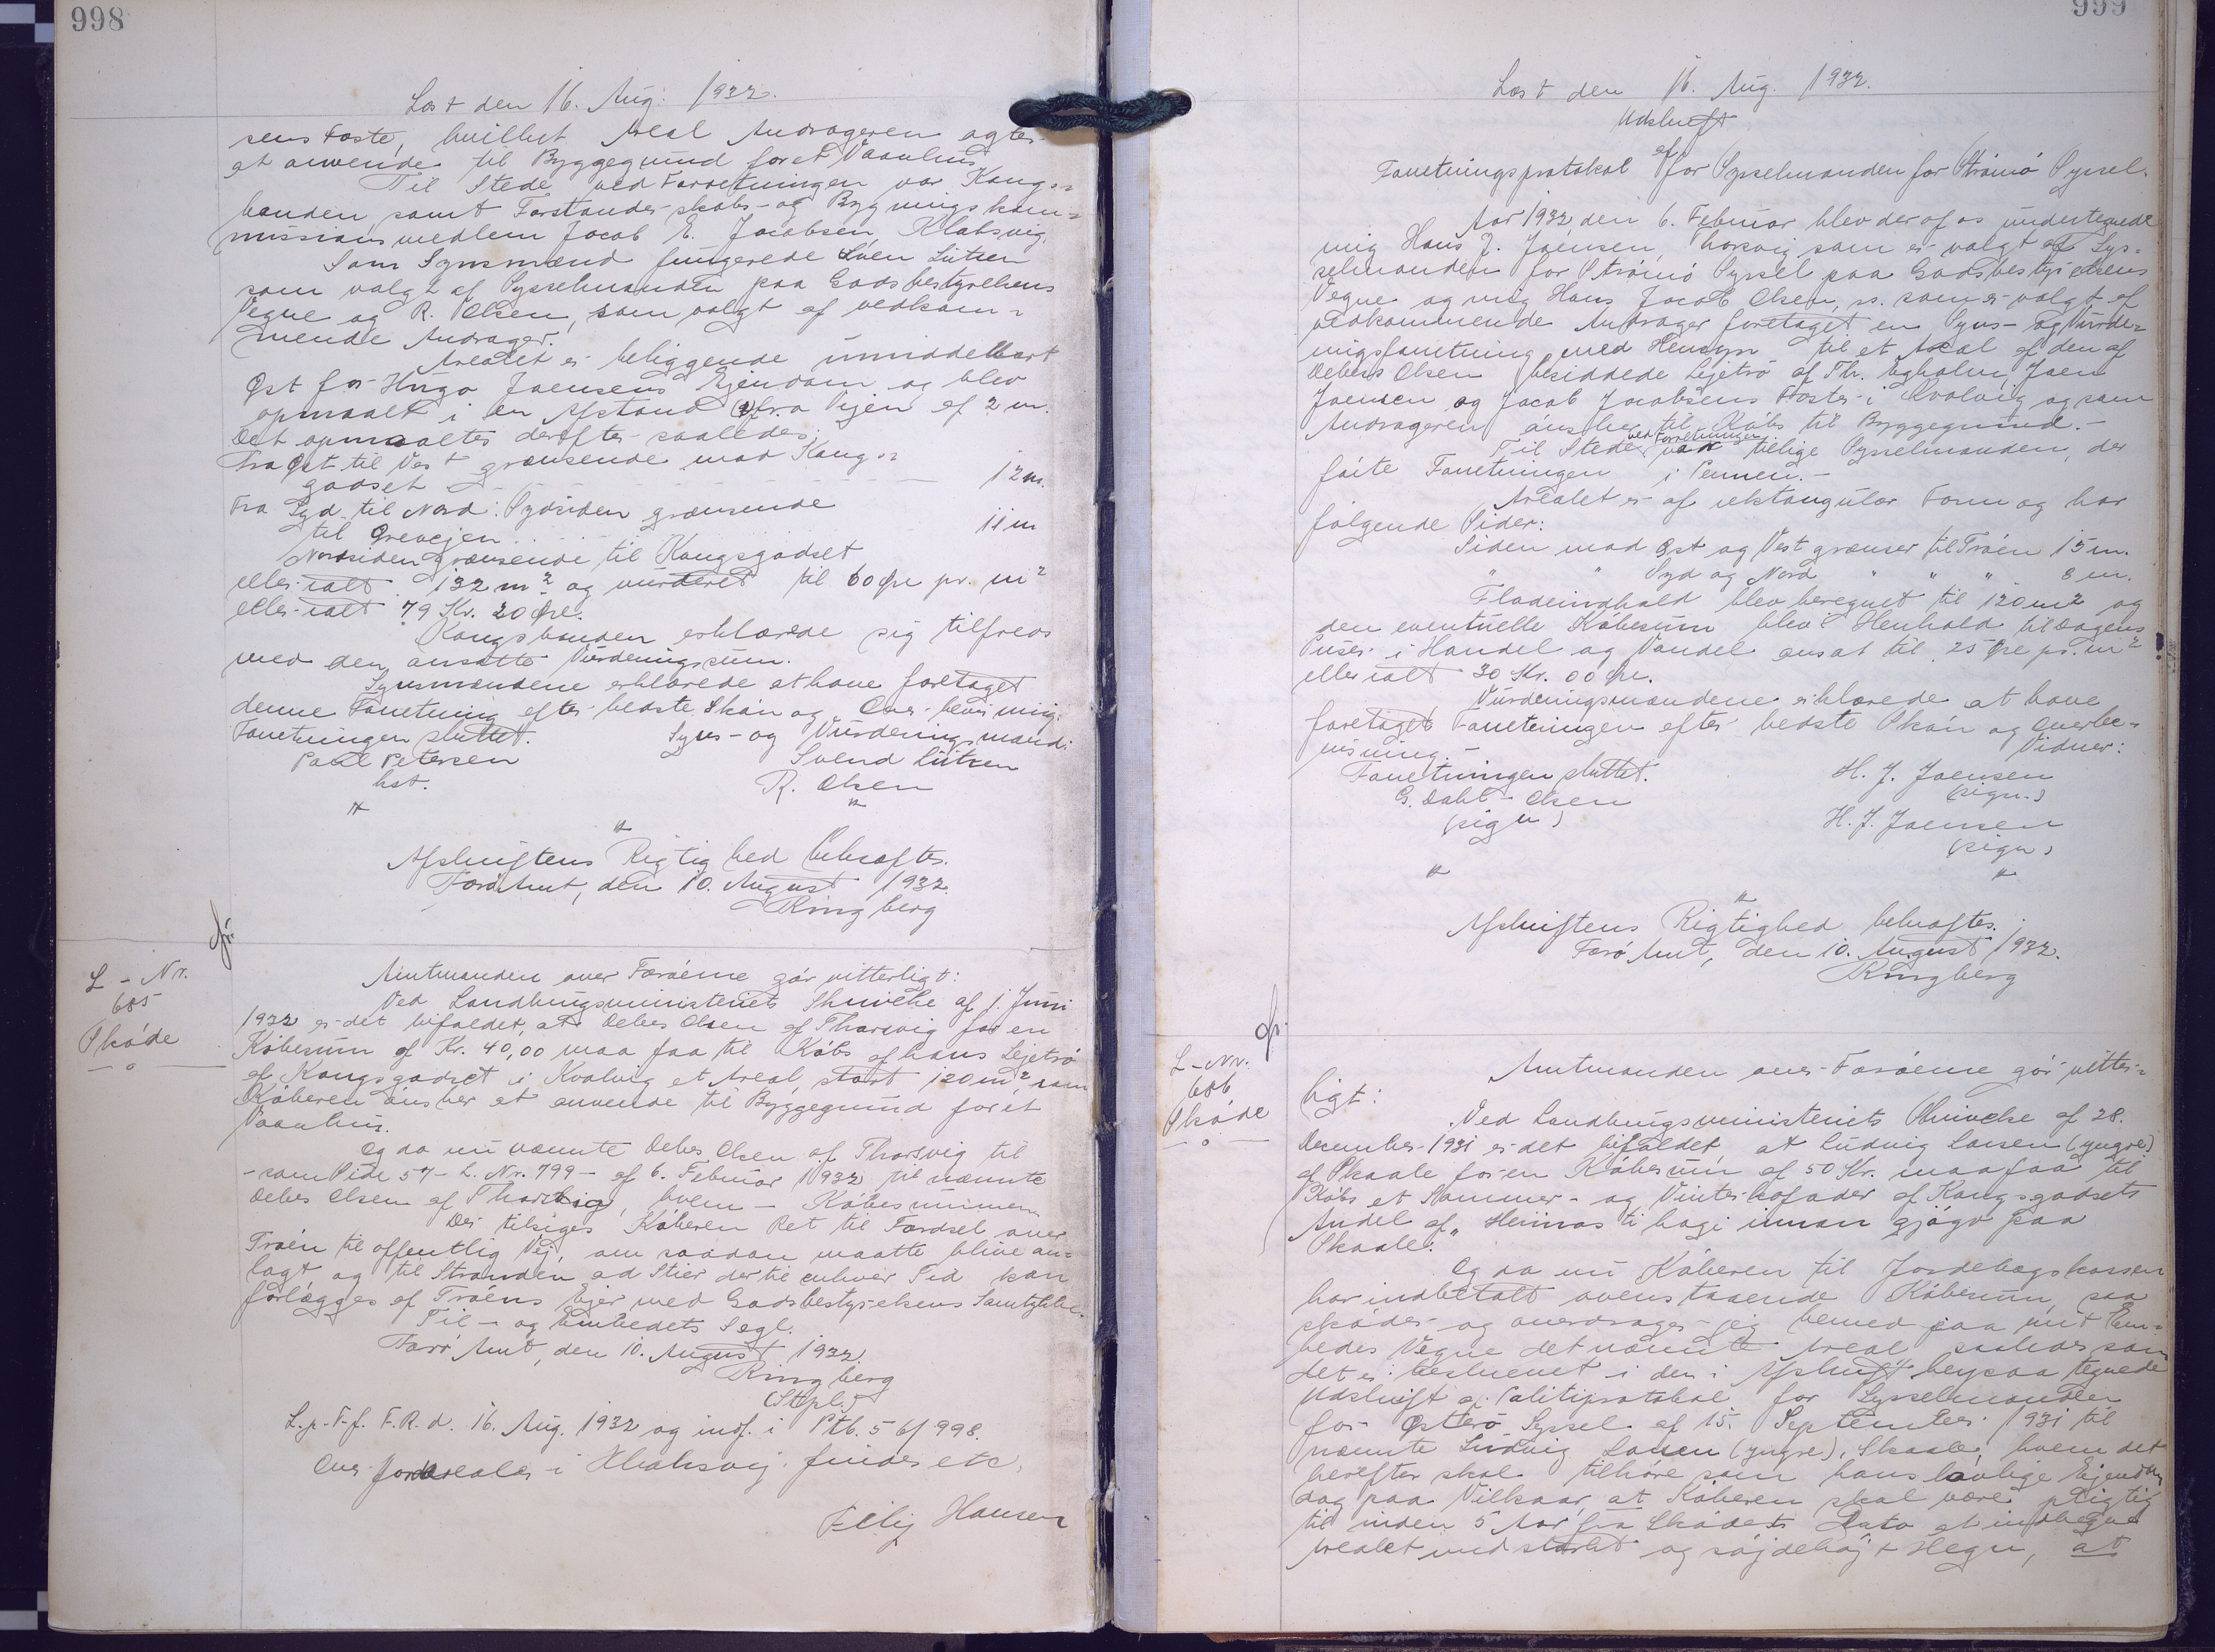 998
Læst den 16. Aug. 1932.
sens Fæste, hvilket Areal Andrageren agter
at anvende til Byggegrund for et Vaanhus.
Til Stede ved Forretningen var Kongs-
bonden samt Forstanderskabs- og Bygningskom-
missionsmedlem Jacob E. Jacobsen, Klaksvig.
Som Synsmænd fungerede Sven Lützen
som valgt af Sysselmanden paa Godsbestyrelsens
Vegne og R. Olsen, som valgt af vedkom-
mende Andrager.
Arealet er beliggende umiddelbart
Øst for Hugo Joensens Ejendom og blev
opmaalt i en Afstand fra Vejen af 2 m.
Det opmaaltes derefter saaledes:
Fra Øst til Vest grænsende mod Kongs-
godset 12 m.
Fra Syd til Nord: Sydsiden grænsende
til Grevejen 11 m
Nordsiden grænsende til Kongsgodset
eller ialt 132 m² og vurderet til 60 Øre pr. m²
eller ialt 79 Kr. 20 Øre.
Kongsbonden erklærede sig tilfreds
med den ansatte Vurderingssum.
Synsmændene erklærede at have foretaget
denne Forretning efter bedste Skøn og Overbevisning.
Forretningen sluttet. Syns- og Vurderingsmænd:
Poul Petersen Svend Lützen
hst. R. Olsen
Afskriftens Rigtighed bekræftes.
Færø Amt, den 10. August 1932.
Ringberg
L-Nr.
685
Skøde
Amtmanden over Færøerne gør vitterligt:
Ved Landbrugsministeriets Skrivelse af 1. Juni
1932 er det bifaldet, at Debes Olsen af Thorsvig for en
Købesum af Kr. 40,00 maa faa til Købs af hans Lejetrø
af Kongsgodset i Kvalvig et Areal, stort 120 m² som
Køberen ønsker at anvende til Byggegrund for et
Vaanhus.
Og da nu nævnte Debes Olsen af Thorsvig til
- som Side 57 - L. Nr. 799 - af 6. Februar 1932 til nævnte
Debes Olsen af Thorsvig, hvem - Købesummen
Der tilsiges Køberen Ret til Færdsel over
Trøen til offentlig Vej, om saadan maatte blive an-
lagt og til Stranden ad Stier der til enhver Tid kan
forlægges af Trøens Ejer med Godsbestyrelsens Samtykke.
Til - og Embedets Segl.
Færø Amt, den 10. August 1932.
Ringberg
(Stpl.)
L. p. F. f. F. R. d. 16. Aug. 1932 og indf. i Ptb. 5 6/998.
Over Jordarealer i Klaksvig findes etc.
Felix Hansen
999
Læst den 16. Aug. 1932.
Udskrift
af
Forretningsprotokol for Sysselmanden for Strømø Syssel.
Aar 1932 den 6. Februar blev der af os undertegnede
mig Hans J. Joensen, Thorsvig som er valgt af Sys-
selmanden for Strømø Syssel paa Godsbestyrelsens
Vegne og mig Hans Jacob Olsen, ss. som er valgt af
vedkommende Andrager foretaget en Syns- og Vurde-
ringsforretning med Hensyn til et Areal af den af
Debes Olsen besiddede Lejetrø af Th. Egholm, Joen
Joensen og Jacob Jacobsens Fæster i Kvalvig og som
Andrageren ønsker til Købs til Byggegrund.-
Til Stede ved Forretningen var tillige Sysselmanden, der
førte Forretningen i Pennen.-
Arealet er af rektangulær Form og har
følgende Sider:
Siden mod Øst og Vest grænser til Trøen 15 m.
" " Syd og Nord " " " 8 m.
Fladeindhold blev beregnet til 120 m² og
den eventuelle Købesum blev i Henhold til Dagens
Priser i Handel og Vandel ansat til 25 Øre pr. m²
eller ialt 30 Kr. 00 Øre.
Vurderingsmændene erklærede at have
foretaget Forretningen efter bedste Skøn og Overbe-
visning.-
Vidner:
Forretningen sluttet. H. J. Joensen
G. Dahl-Olsen (sign.)
(sign) H. J. Joensen
(sign)
Afskriftens Rigtighed bekræftes.
Færø Amt, den 10. August 1932.
Ringberg
L-Nr.
686
Skøde
Amtmanden over Færøerne gør vitter-
ligt:
Ved Landbrugsministeriets Skrivelse af 28.
December 1931 er det bifaldet at Ludvig Larsen (yngre)
af Skaale for en Købesum af 50 Kr. maa faa til
Købs et Sommer- og Vinterkofoder af Kongsgodsets
Andel af "Heiinas ti hagi innan gjógv paa
Skaale."
Og da nu Køberen til Jordebogskassen
har indbetalt ovenstaaende Købesum, saa
skøder og overdrager jeg herved paa mit Em-
bedes Vegne det nævnte Areal saaledes som
det er beskrevet i den i Afskrift herpaa tegnede
Udskrift af Politiprotokol for Sysselmanden
for Østerø Syssel af 15. September 1931 til
nævnte Ludvig Larsen (yngre), Skaale, hvem det
herefter skal tilhøre som hans lovlige Ejendom
dog paa Vilkaar, at Køberen skal være pligtig
til inden 5 Aar fra Skødets Dato at indhegne
Arealet med stærkt og søjdehøjt Hegn, at